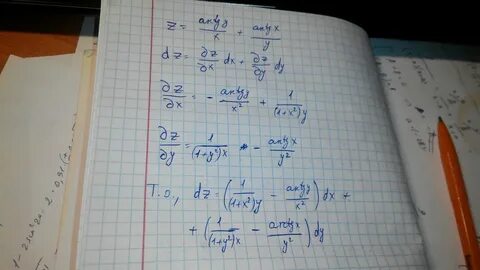 z = arctg y / x + arctg x / y
dz = ∂z/∂x dx + ∂z/∂y dy
∂z/∂x = - arctg y / x² + 1 / (1+x²)y
∂z/∂y = 1 / (1+y²)x - arctg x / y²
Т.о., dz = (1 / (1+x²)y - arctg y / x²) dx +
+ (1 / (1+y²)x - arctg x / y²) dy